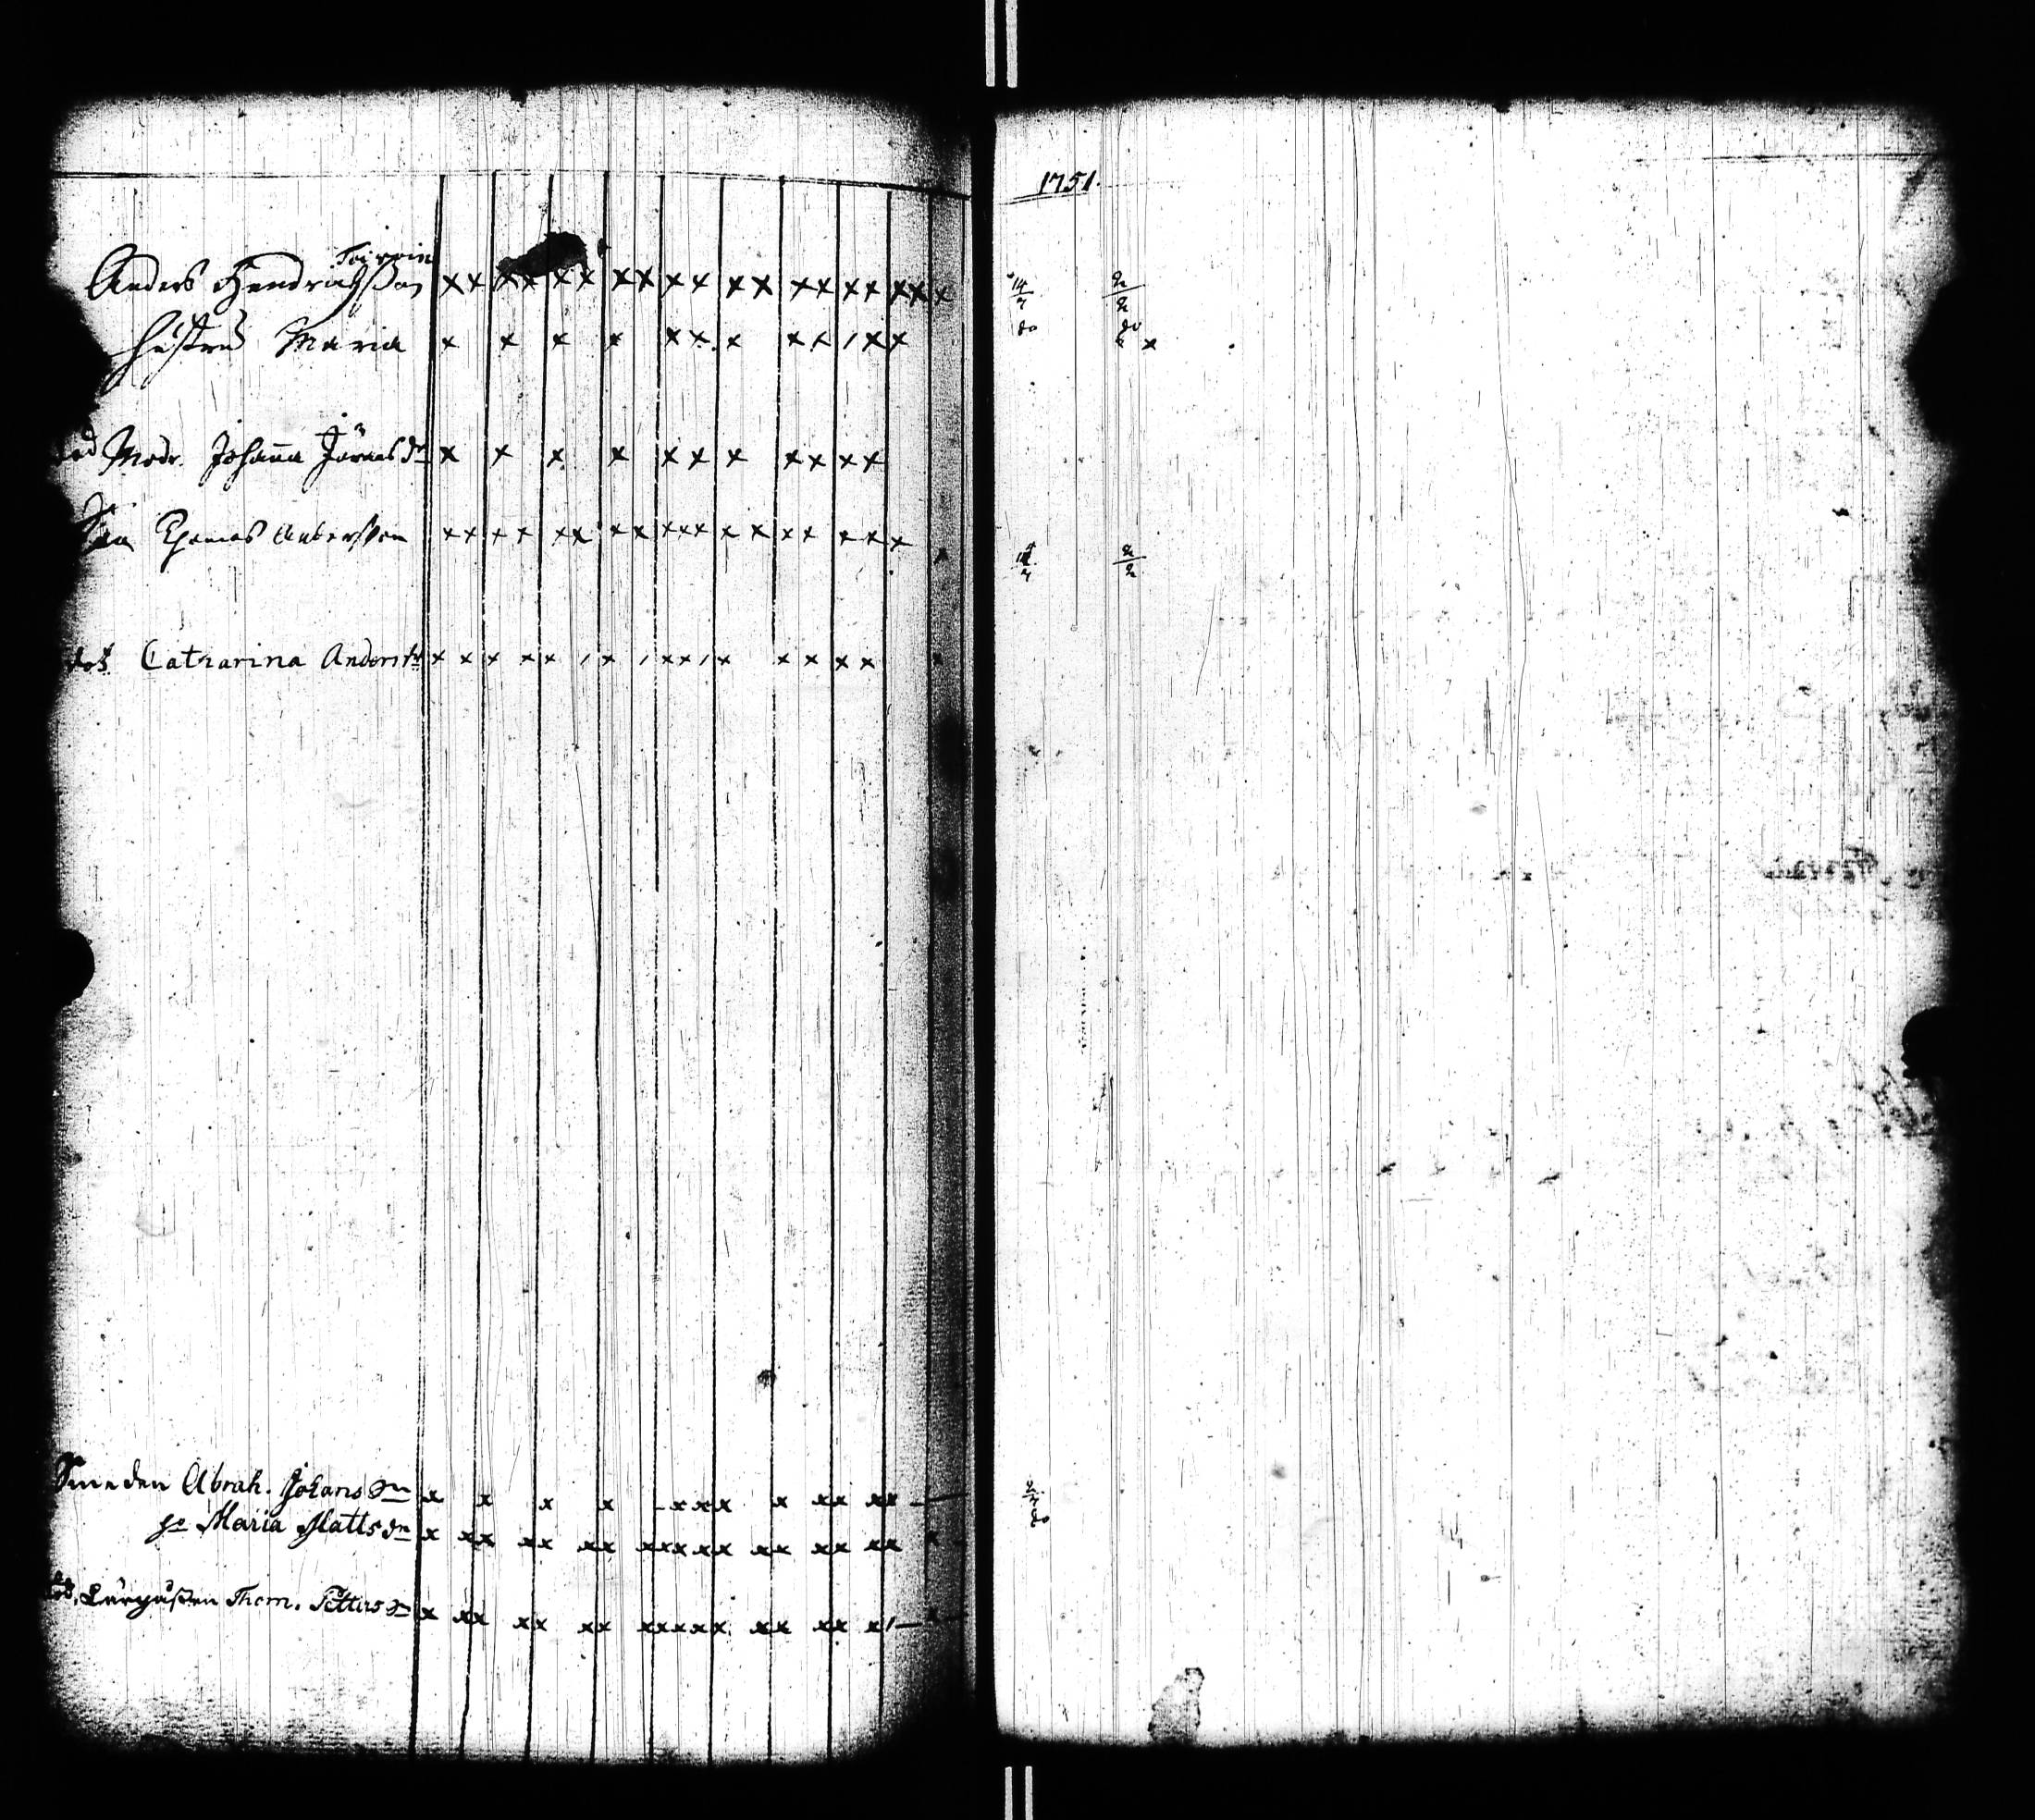 Toivoin
Anders Hendrichsson xx xx xx xx xx xx xx xx xx x
hustru Maria x x x x xx x xx / xx
Modr. Johanna Jörans dr x x x x xx x xx xx
Son Thomas Andersson xx xx xx xx xxx xx xx xx x
dot. Catharina Anders dr x xx xx / x / xx / x xx xx
Smeden Abrah. Johans Sn x x x x - xxx x xx xx -
h:o Maria Matts dr x xx xx xx xxxxx xx xx xx x
Thom. Petters Sn x xx xx xx xxxxx xx xx x/ - x
1751.
14/7 2/2
do do
x
2/2
do